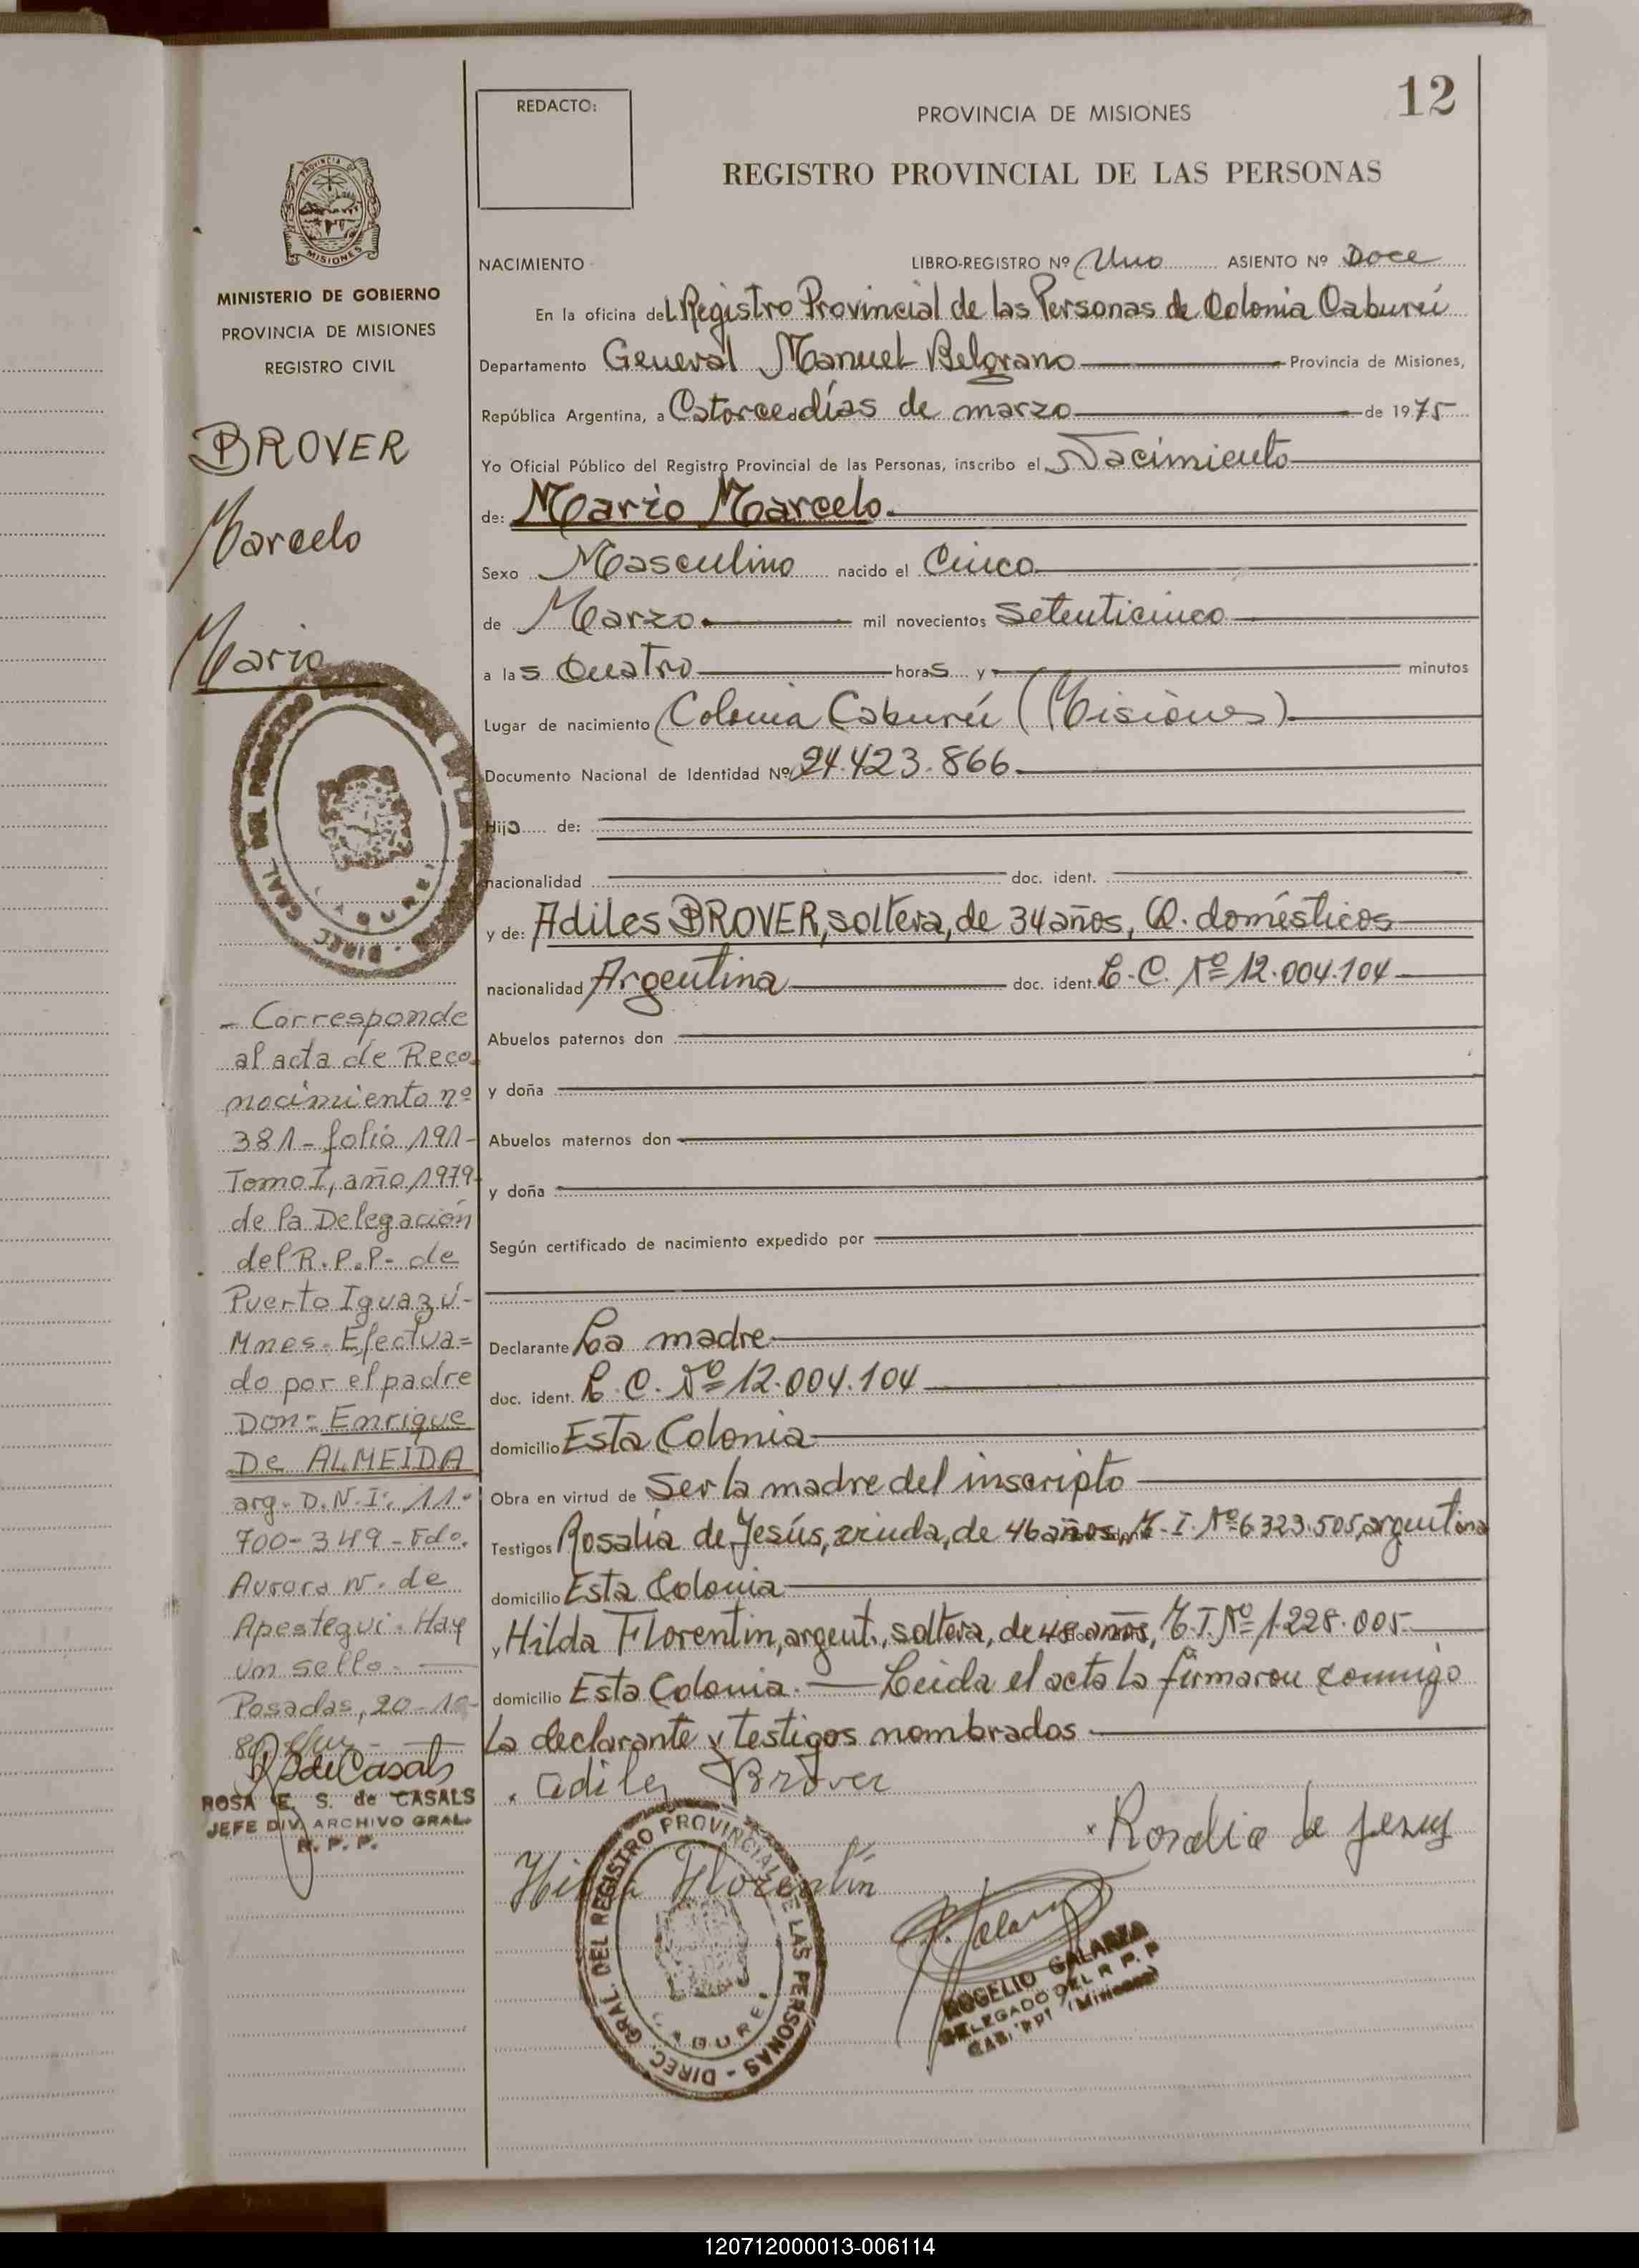 12
REDACTO:
PROVINCIA DE MISIONES
REGISTRO PROVINCIAL DE LAS PERSONAS
PROVINCIA DE
MISIONES
MINISTERIO DE GOBIERNO
PROVINCIA DE MISIONES
REGISTRO CIVIL
BROVER
Marcelo
Mario
NACIMIENTO LIBRO-REGISTRO Nº Uno ASIENTO Nº Doce
En la oficina del Registro Provincial de las Personas de Colonia Cabureí
Departamento General Manuel Belgrano Provincia de Misiones,
República Argentina, a Catorce días de marzo de 1975
Yo Oficial Público del Registro Provincial de las Personas, inscribo el Nacimiento
de: Mario Marcelo.
Sexo Masculino nacido el Cinco
de Marzo mil novecientos setenticinco
a las Cuatro horas y minutos
Lugar de nacimiento Colonia Cabureí (Misiones).
Documento Nacional de Identidad Nº 24.423.866
Hijo de:
nacionalidad doc. ident.
y de: Adiles BROVER, soltera, de 34 años, Q. domésticos
nacionalidad Argentina doc. ident. L.C. Nº 12.004.104
Abuelos paternos don
y doña
Abuelos maternos don
y doña
Según certificado de nacimiento expedido por
Declarante La madre
doc. ident. L.C. Nº 12.004.104
domicilio Esta Colonia
Obra en virtud de Ser la madre del inscripto
Testigos Rosalía de Jesús, viuda, de 46 años, M.I. Nº 6323.505, argentina
domicilio Esta Colonia
y Hilda Florentin, argent., soltera, de 48 años, M.I. Nº 1.228.005
domicilio Esta Colonia. — Leida el acta la firmarou conmigo
la declarante y testigos nombrados
Adiles Brover
Rosalia de Jesus
Hilda Florentin
DIREC. GRAL. DEL REGISTRO PROVINCIAL DE LAS PERSONAS
CABUREI
ROGELIO GALARZA
DELEGADO DEL R. P. P
(Misiones)
DIREC. GRAL. DEL REGISTRO
CABUREI
- Corresponde
al acta de Reco
nocimiento nº
381 - folio 191 -
Tomo I, año 1979
de la Delegación
del R.P.P. de
Puerto Iguazú -
Mnes. Efectua=
do por el padre
Don: Enrique
De ALMEIDA
arg. D.N.I. 11.
700-349 - Fdo.
Aurora N. de
Apestegui. Hay
un sello. —
Posadas, 20-10-
R S de Casals
ROSA E. S. de CASALS
JEFE DIV. ARCHIVO GRAL.
R. P. P.
120712000013-006114